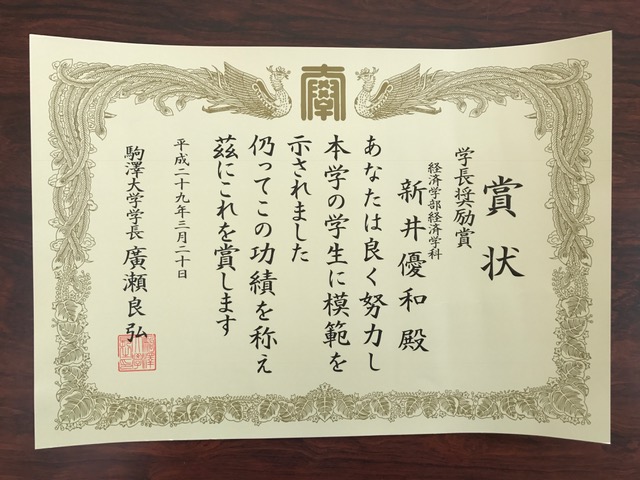 賞状
学長奨励賞
経済学部経済学科
新井優和殿
あなたは良く努力し
本学の学生に模範を
示されました
仍ってこの功績を称え
茲にこれを賞します
平成二十九年三月二十日
駒澤大学学長 廣瀬良弘